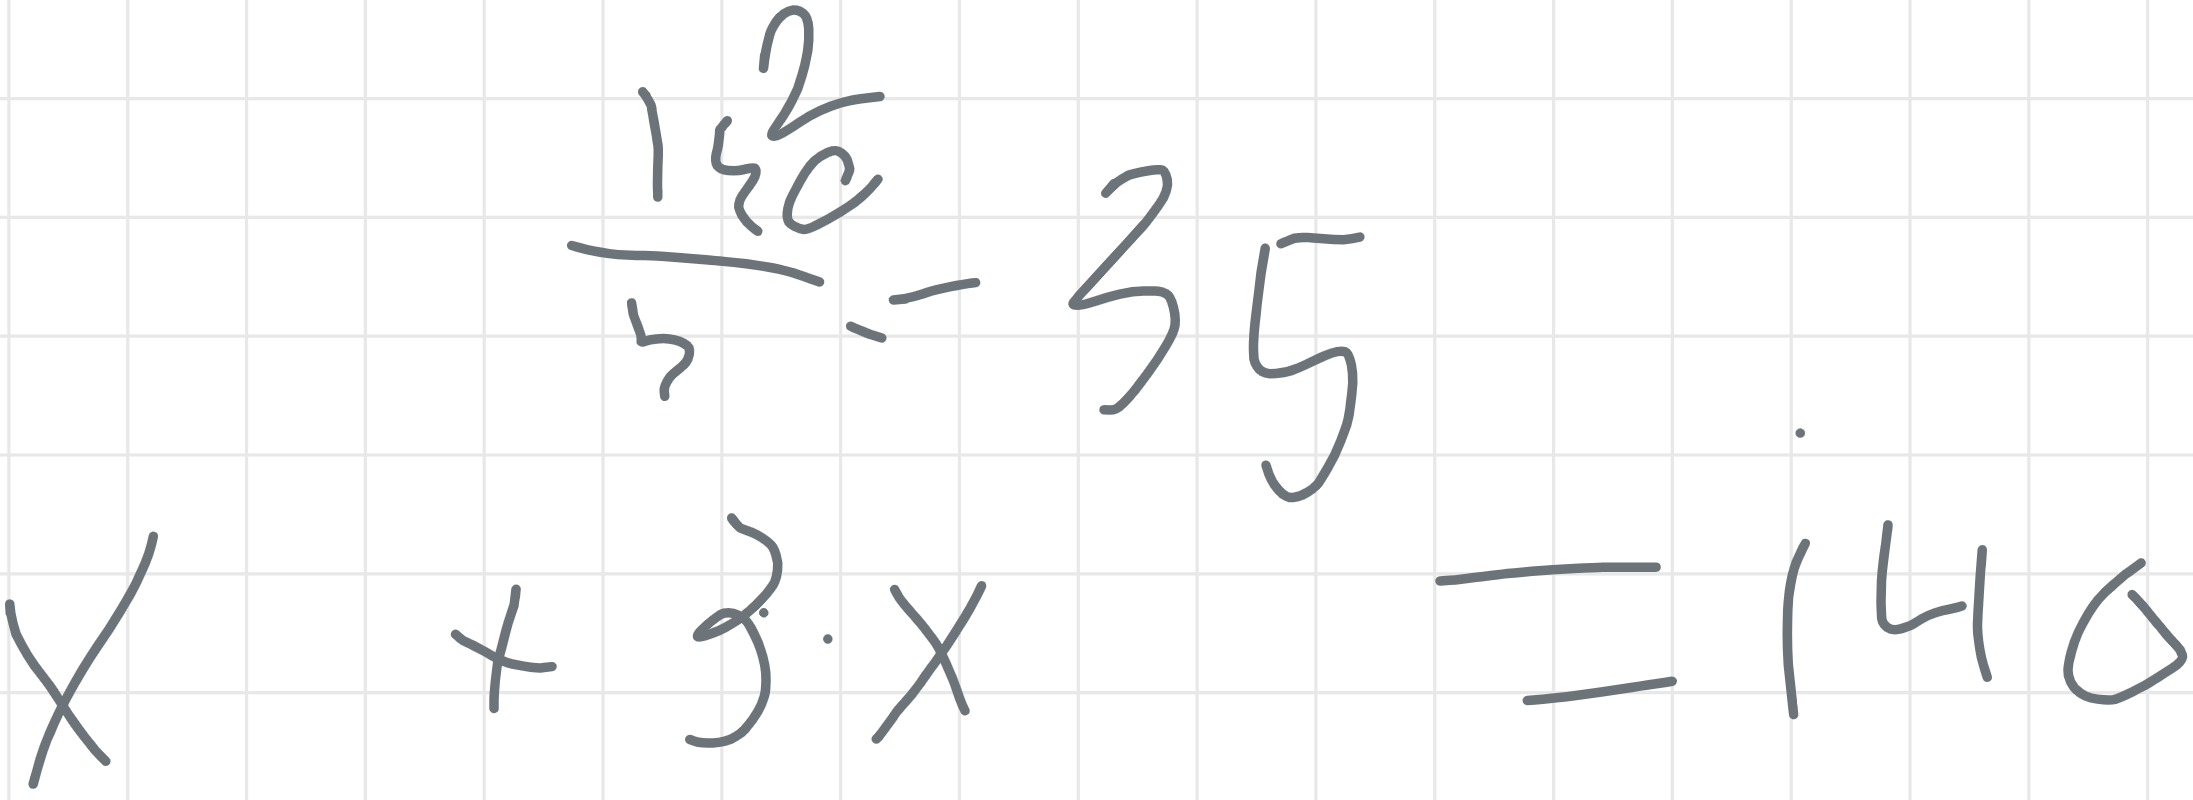 2
140
4 = 35
x + 3 · x = 140